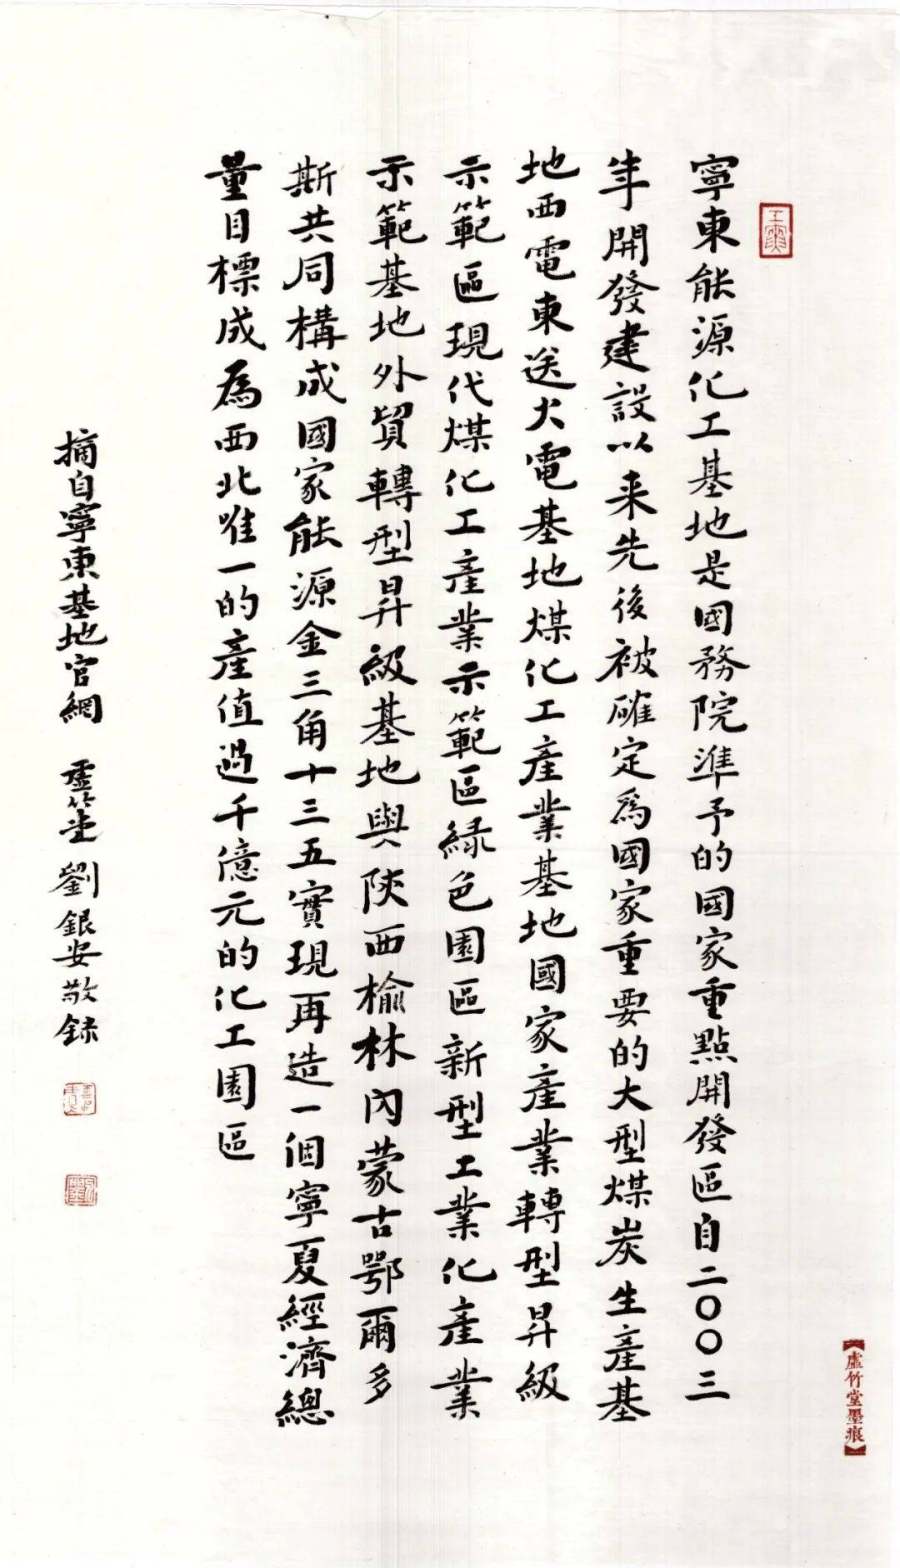 寧東能源化工基地是國務院準予的國家重點開發區自二〇〇三
年開發建設以来先後被確定爲國家重要的大型煤炭生產基
地西電東送火電基地煤化工產業基地國家產業轉型昇級
示範區現代煤化工產業示範區緑色園區新型工業化產業
示範基地外貿轉型昇級基地與陝西榆林内蒙古鄂爾多
斯共同構成國家能源金三角十三五實現再造一個寧夏經濟總
量目標成爲西北唯一的產值過千億元的化工園區
摘自寧東基地官網 虛竹堂劉銀安敬録
【虛竹堂墨痕】